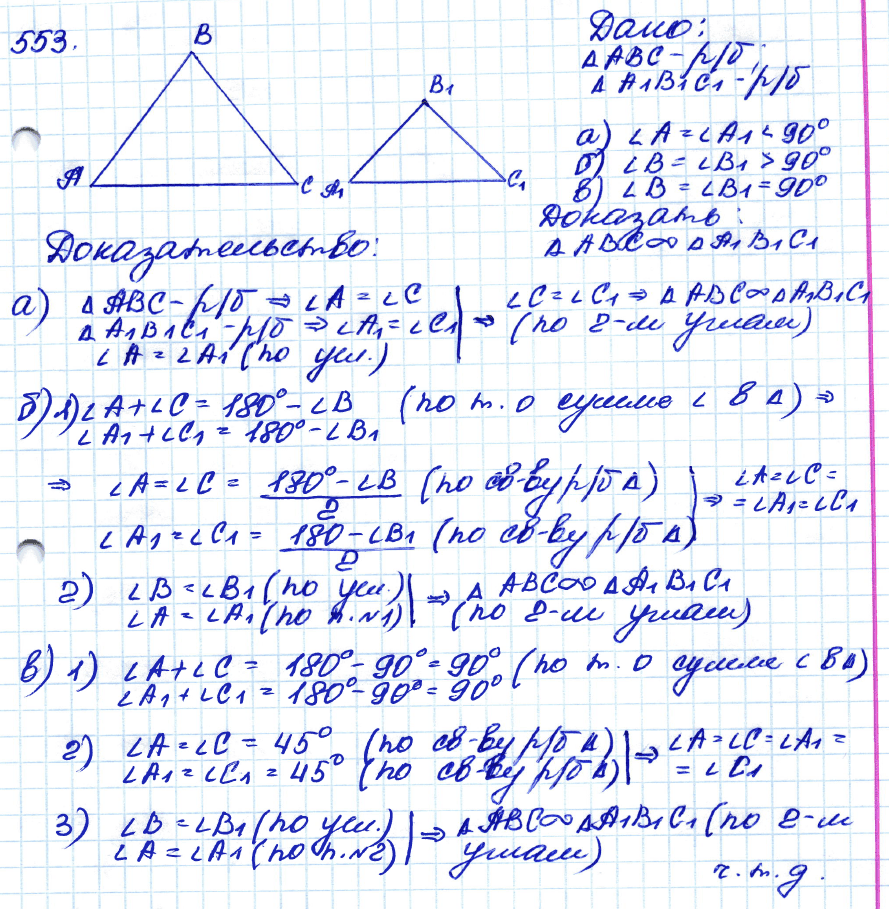 553.
B
A
C
B₁
A₁
C₁
Дано:
△ ABC – р/б;
△ A₁B₁C₁ – р/б
а) ∠A = ∠A₁ < 90°
б) ∠B = ∠B₁ > 90°
в) ∠B = ∠B₁ = 90°
Доказать:
△ABC ∞ △A₁B₁C₁
Доказательство:
а) △ABC – р/б ⇒ ∠A = ∠C
△A₁B₁C₁ – р/б ⇒ ∠A₁ = ∠C₁
∠A = ∠A₁ (по усл.)
⇒ ∠C = ∠C₁ ⇒ △ABC ∞ △A₁B₁C₁
(по 2-м углам)
б) 1) ∠A + ∠C = 180° – ∠B (по т. о сумме ∠ в △) ⇒
∠A₁ + ∠C₁ = 180° – ∠B₁
⇒ ∠A = ∠C = (180° – ∠B)/2 (по св-ву р/б △)
∠A₁ = ∠C₁ = (180 – ∠B₁)/2 (по св-ву р/б △)
⇒ ∠A = ∠C =
= ∠A₁ = ∠C₁
2) ∠B = ∠B₁ (по усл.)
∠A = ∠A₁ (по п. №1)
⇒ △ ABC ∞ △A₁B₁C₁
(по 2-м углам)
в) 1) ∠A + ∠C = 180° – 90° = 90° (по т. о сумме ∠ в △)
∠A₁ + ∠C₁ = 180° – 90° = 90°
2) ∠A = ∠C = 45° (по св-ву р/б △)
∠A₁ = ∠C₁ = 45° (по св-ву р/б △)
⇒ ∠A = ∠C = ∠A₁ =
= ∠C₁
3) ∠B = ∠B₁ (по усл.)
∠A = ∠A₁ (по п. №2)
⇒ △ABC ∞ △A₁B₁C₁ (по 2-м
углам)
ч. т. д.